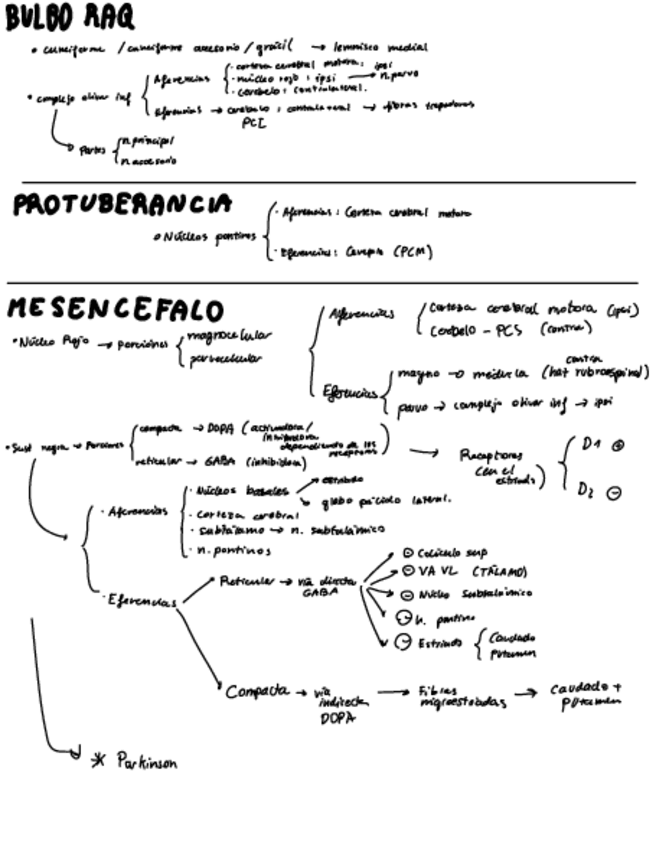 BULBO RAQ
• cuneiforme / cuneiforme accesorio / grácil → lemnisco medial
• complejo olivar inf
Aferencias
· corteza cerebral motora: ipsi
· núcleo rojo: ipsi → n. parvo
· cerebelo: contralateral.
Eferencias → cerebelo: contralateral → fibras trepadoras
PCI
Partes
n. principal
n. accesorio
PROTUBERANCIA
Núcleos pontinos
· Aferencias: Corteza cerebral motora
· Eferencias: (PCM)
MESENCEFALO
• Núcleo Rojo → porciones
magnocelular
parvocelular
Aferencias
Corteza cerebral motora (ipsi)
Cerebelo - PCS (contra)
Eferencias
magno → médula (haz rubroespinal)
contra
parvo → complejo olivar inf → ipsi
• Sust negra → Porciones
compacta → DOPA (activadora/
inhibidora
dependiendo de los
receptores)
reticular → GABA (inhibidora)
→ Receptores
(en el
estriado)
D1 ⊕
D2 ⊖
· Aferencias
· Núcleos basales
estriado
globo pálido lateral.
· Corteza cerebral
· subtálamo → n. subtalámico
· n. pontinos
· Eferencias
Reticular → vía directa
GABA
⊖ Colículo sup
⊖ VA VL (TÁLAMO)
⊖ Núcleo Subtalámico
⊖ n. pontino
⊖ Estriado
Caudado
Putamen
Compacta → vía
indirecta
DOPA
→ Fibras
nigroestriadas
→ Caudado +
Putamen
* Parkinson